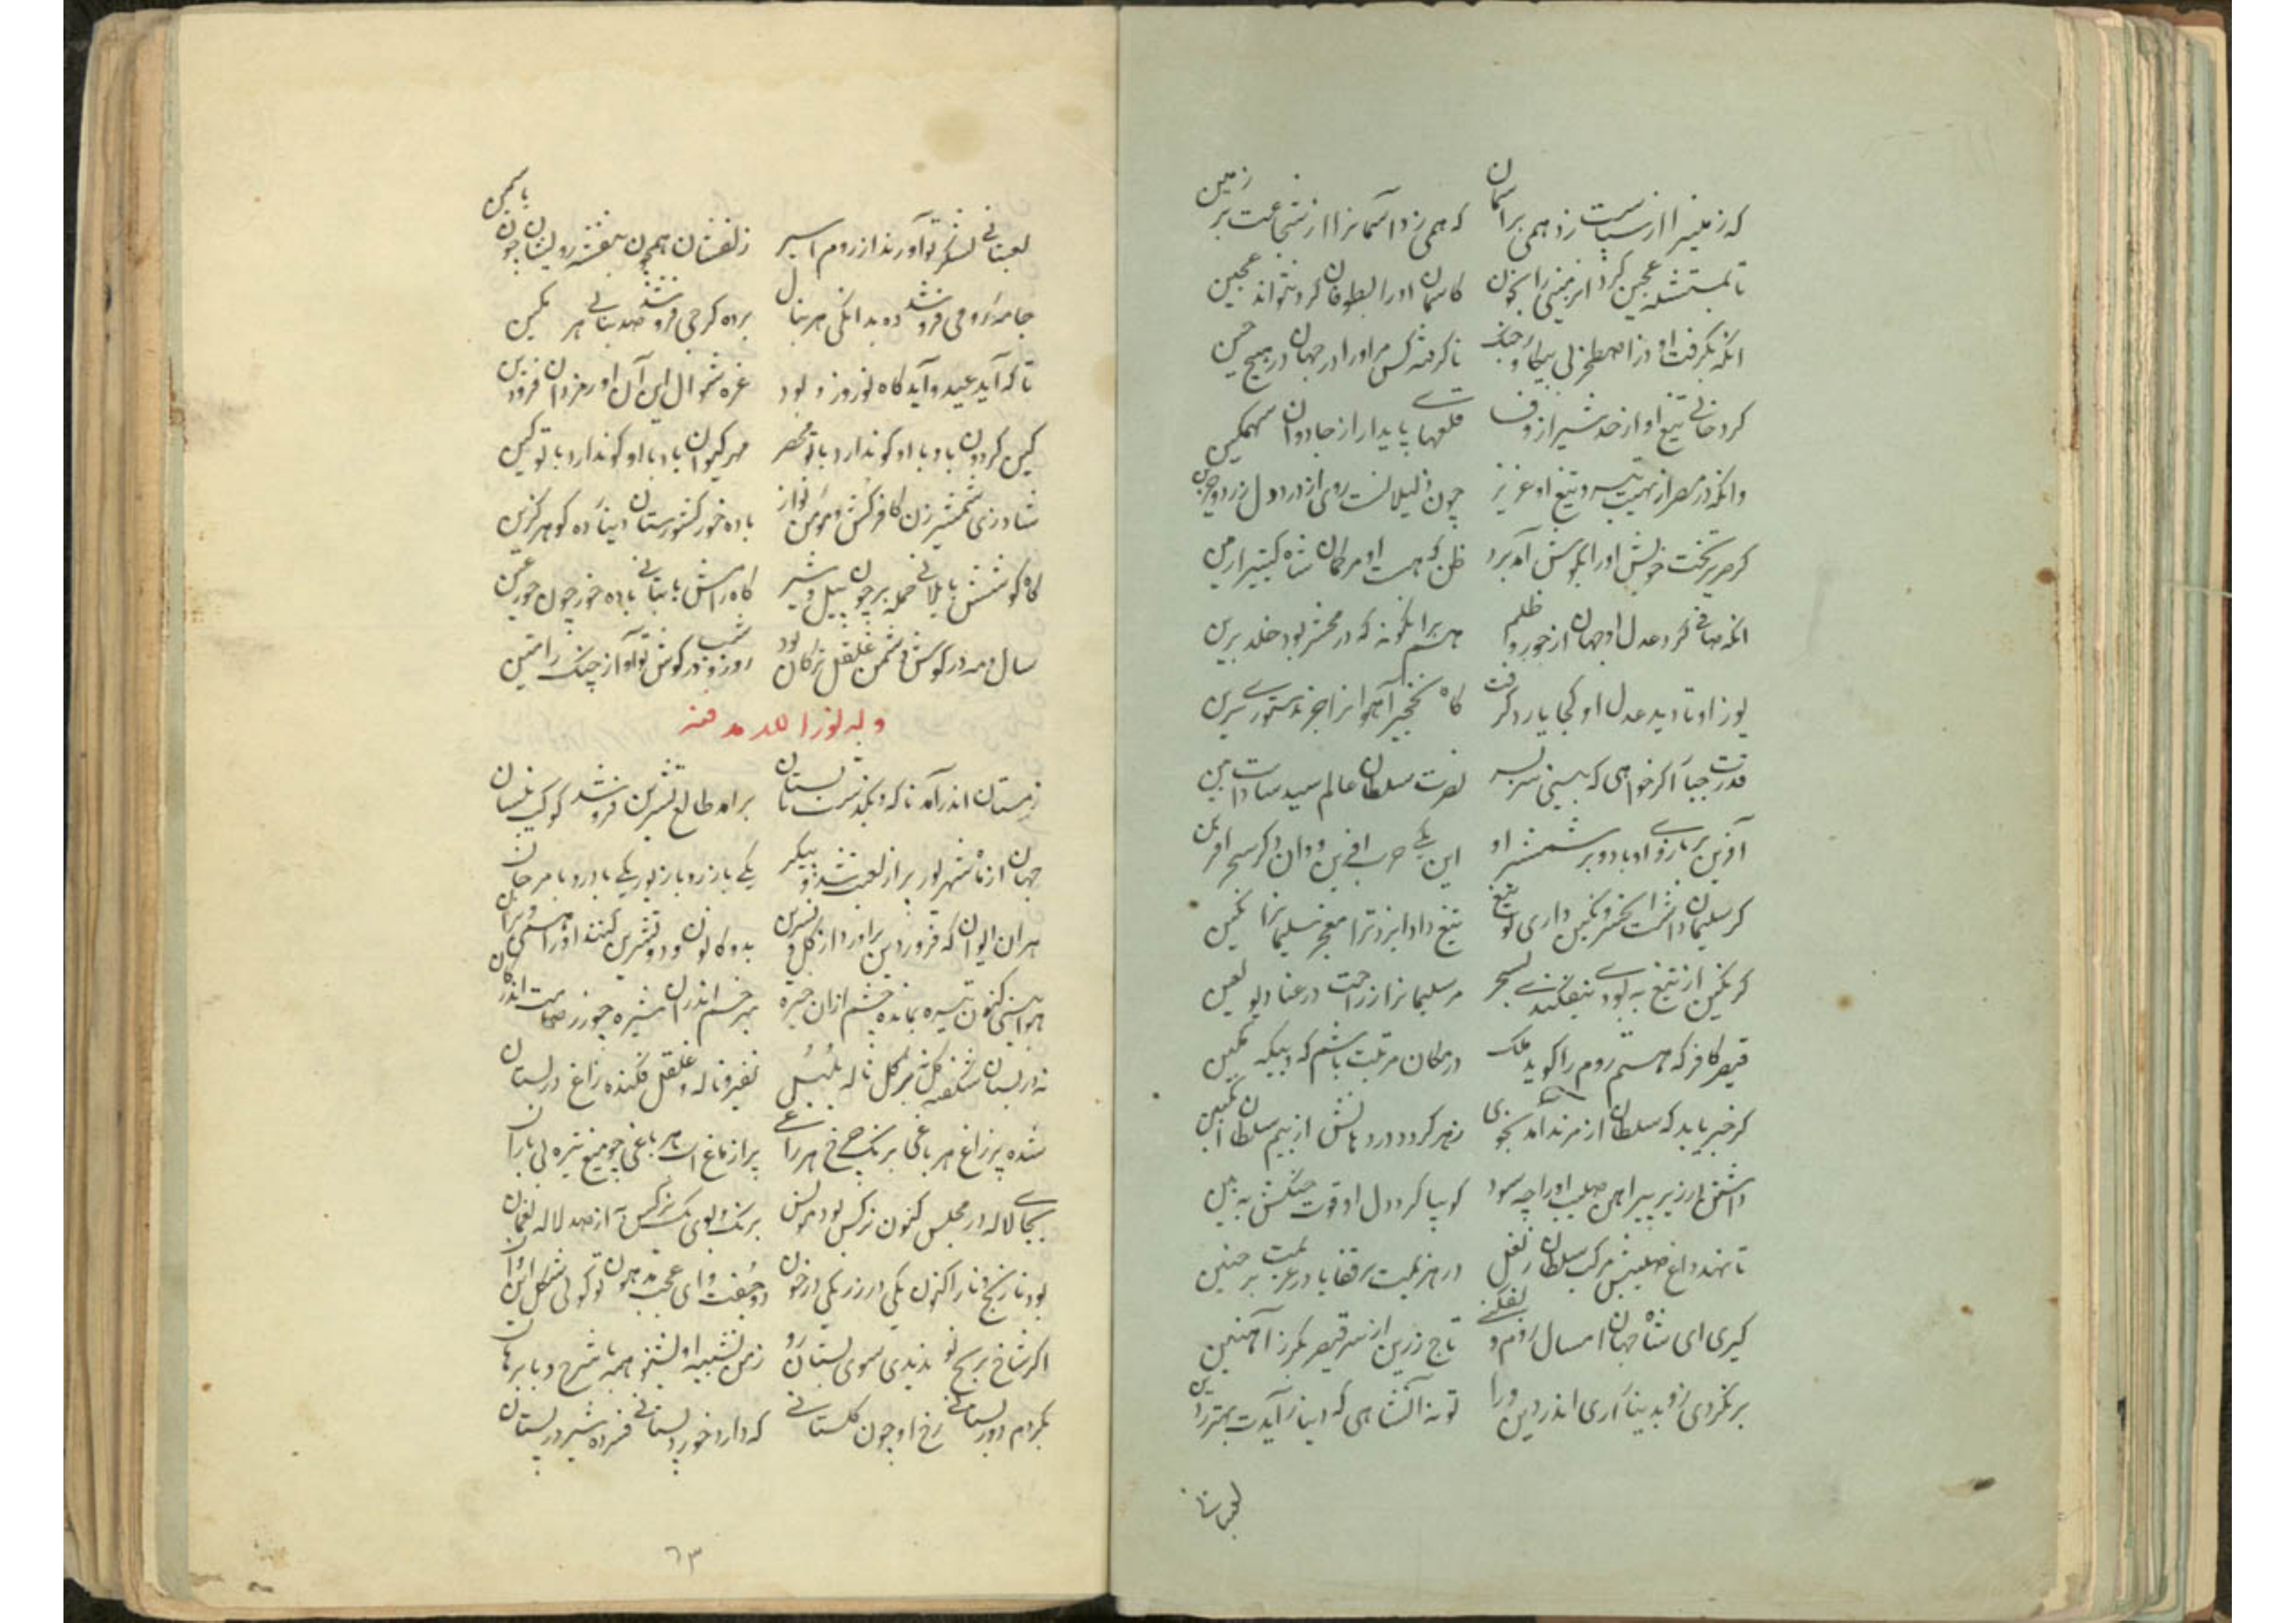 که زمین را از سیاست زد همی بر آسمان که همی زد آسمانرا از شجاعت بر زمین
تا نمستش عجین کرد ابر زمینی را بخون کاسمان اورا بطوفان کرد نتواند عجین
انکه بگرفت او در اصطخر بی پیکار و جنک ناگرفته کس مر اورا در جهان در هیچ حین
کرد خالی تیغ او از خد شیر از وف قلعهای پایدار از جادوان سهمکین
وانکه در مصر از نهیب تیر و تیغ او عزیز چون ذلیلانست روی از درد دل زرد و حزین
کر سریر تخت خویش اورا بپوش آمد برد ظن که هست او مر کمان شاه کبتیر ارمن
انکه صافی کرد عدل او جهان از جور و ظلم هم بر انکونه که در محشر بود خلد برین
یوز او تا دید عدل او کجا یارد کرفت کاه نخجیر آهوانرا جز بدستوری سرین
قدرت جبار اکر خواهی که بینی سر بسر نصرت سلطان عالم سید سادات بین
آفرین بر بازوی او باد و بر شمشیر او این یکی حرب افرین و دان دکر سحر افرین
کر سلیمان داشت انکشتر و نکین داری تو تیغ تیغ داد ایزد ترا معجز سلیمانرا نکین
کر نکین از تیغ به بودی نیفکندی بسحر مر سلیمانرا ز راحت در عنا دیو لعین
قیصر کافر که هستم روم را کوید ملک در مکان مرتبت باشم که و بیکه مکین
کر خبر یابد که سلطان از مرند آمد بخوی زهر کردد در دهانش از بیم سلطان انکبین
داشتن در زیر پیراهن صلیب اورا چه سود کو بپا کردد دل او قوت جنکش به بین
تا نهد داغ صلیبش مرکب سلطان ز نعل در هزیمت بر قفا یا در عزیمت بر جبین
کیری ای شاه جهان امسال روم و بفکنی تاج زرین از سر قیصر بکرز آهنین
بر نکردی زو بدینار آری اندر دین ورا تو نه آنشاهی که دینار آیدت بهتر ز دین
لعبتانی
لعبتانی لشکر تو آورند از روم اسیر زلفشان همچون بنفشه رویشان چون یاسمین
جامه رومی فروشند ده بدانکی هر نهال برده کرجی فروشند صد بنانی هر نکین
تا که آید عید و آید کاه نوروز و بود غره شوال این آن اورمزد فرودین
کین کردون باد با او کو ندارد با تو مهر مهر کیوان باد با او کو ندارد با تو کین
شاد زی شمشیر زن کافر کش و مؤمن نواز باده خور کشور ستان دینار ده کوهر کزین
کاه کوشش با یلانی حمله بر چون پیل و شیر کاه رامش با بتانی باده خور چون حور عین
سال و مه در کوش دشمن غلغل ترکان بود روز و شب در کوش تو آواز چنک رامتین
وله نور الله مرقده
زمستان اندر آمد ناکه و بکذشت تابستان برامد طالع تشرین فرو شد کوکب نیسان
جهان از ماه شهریور پر از لعبت شد و پیکر یکی با زر و با زیور یکی با در و با مرجان
هر ان الوان که فروردین براورد از کل و نسرین بدو کانون و دو تشرین کنند اورا همی ویران
هوا بینی کنون تیره بمانده چشم ازان خیره بهر خم اندران شیره چو زر صامت اندر کان
نه در بستان شکفته کل نه بر کل ناله بلبل نفیر و ناله و غلغل فکنده زاغ در بستان
شده پر زاغ هر باغی برنک چرخ هر راغی پر از ماغ است هر باغی چو میغ تیره بی باران
بجای لاله در مجلس کنون نرکس بود مونس برنک و بوی یک نرکس به از صد لاله نعمان
بود نارنج و نار اکنون یکی در زر یکی در خون دو جفت ای عجب مدهون تو کوئی شکل این و آن
اکر شاخ ترنج نو ندیدی سوی بستان رو ز من تشبیه او بشنو همه با شرح و با برهان
بکردم دور بستانی رخ او چون کلستانی که دارد خورد بستانی فسرده شیر در بستان
٦٣